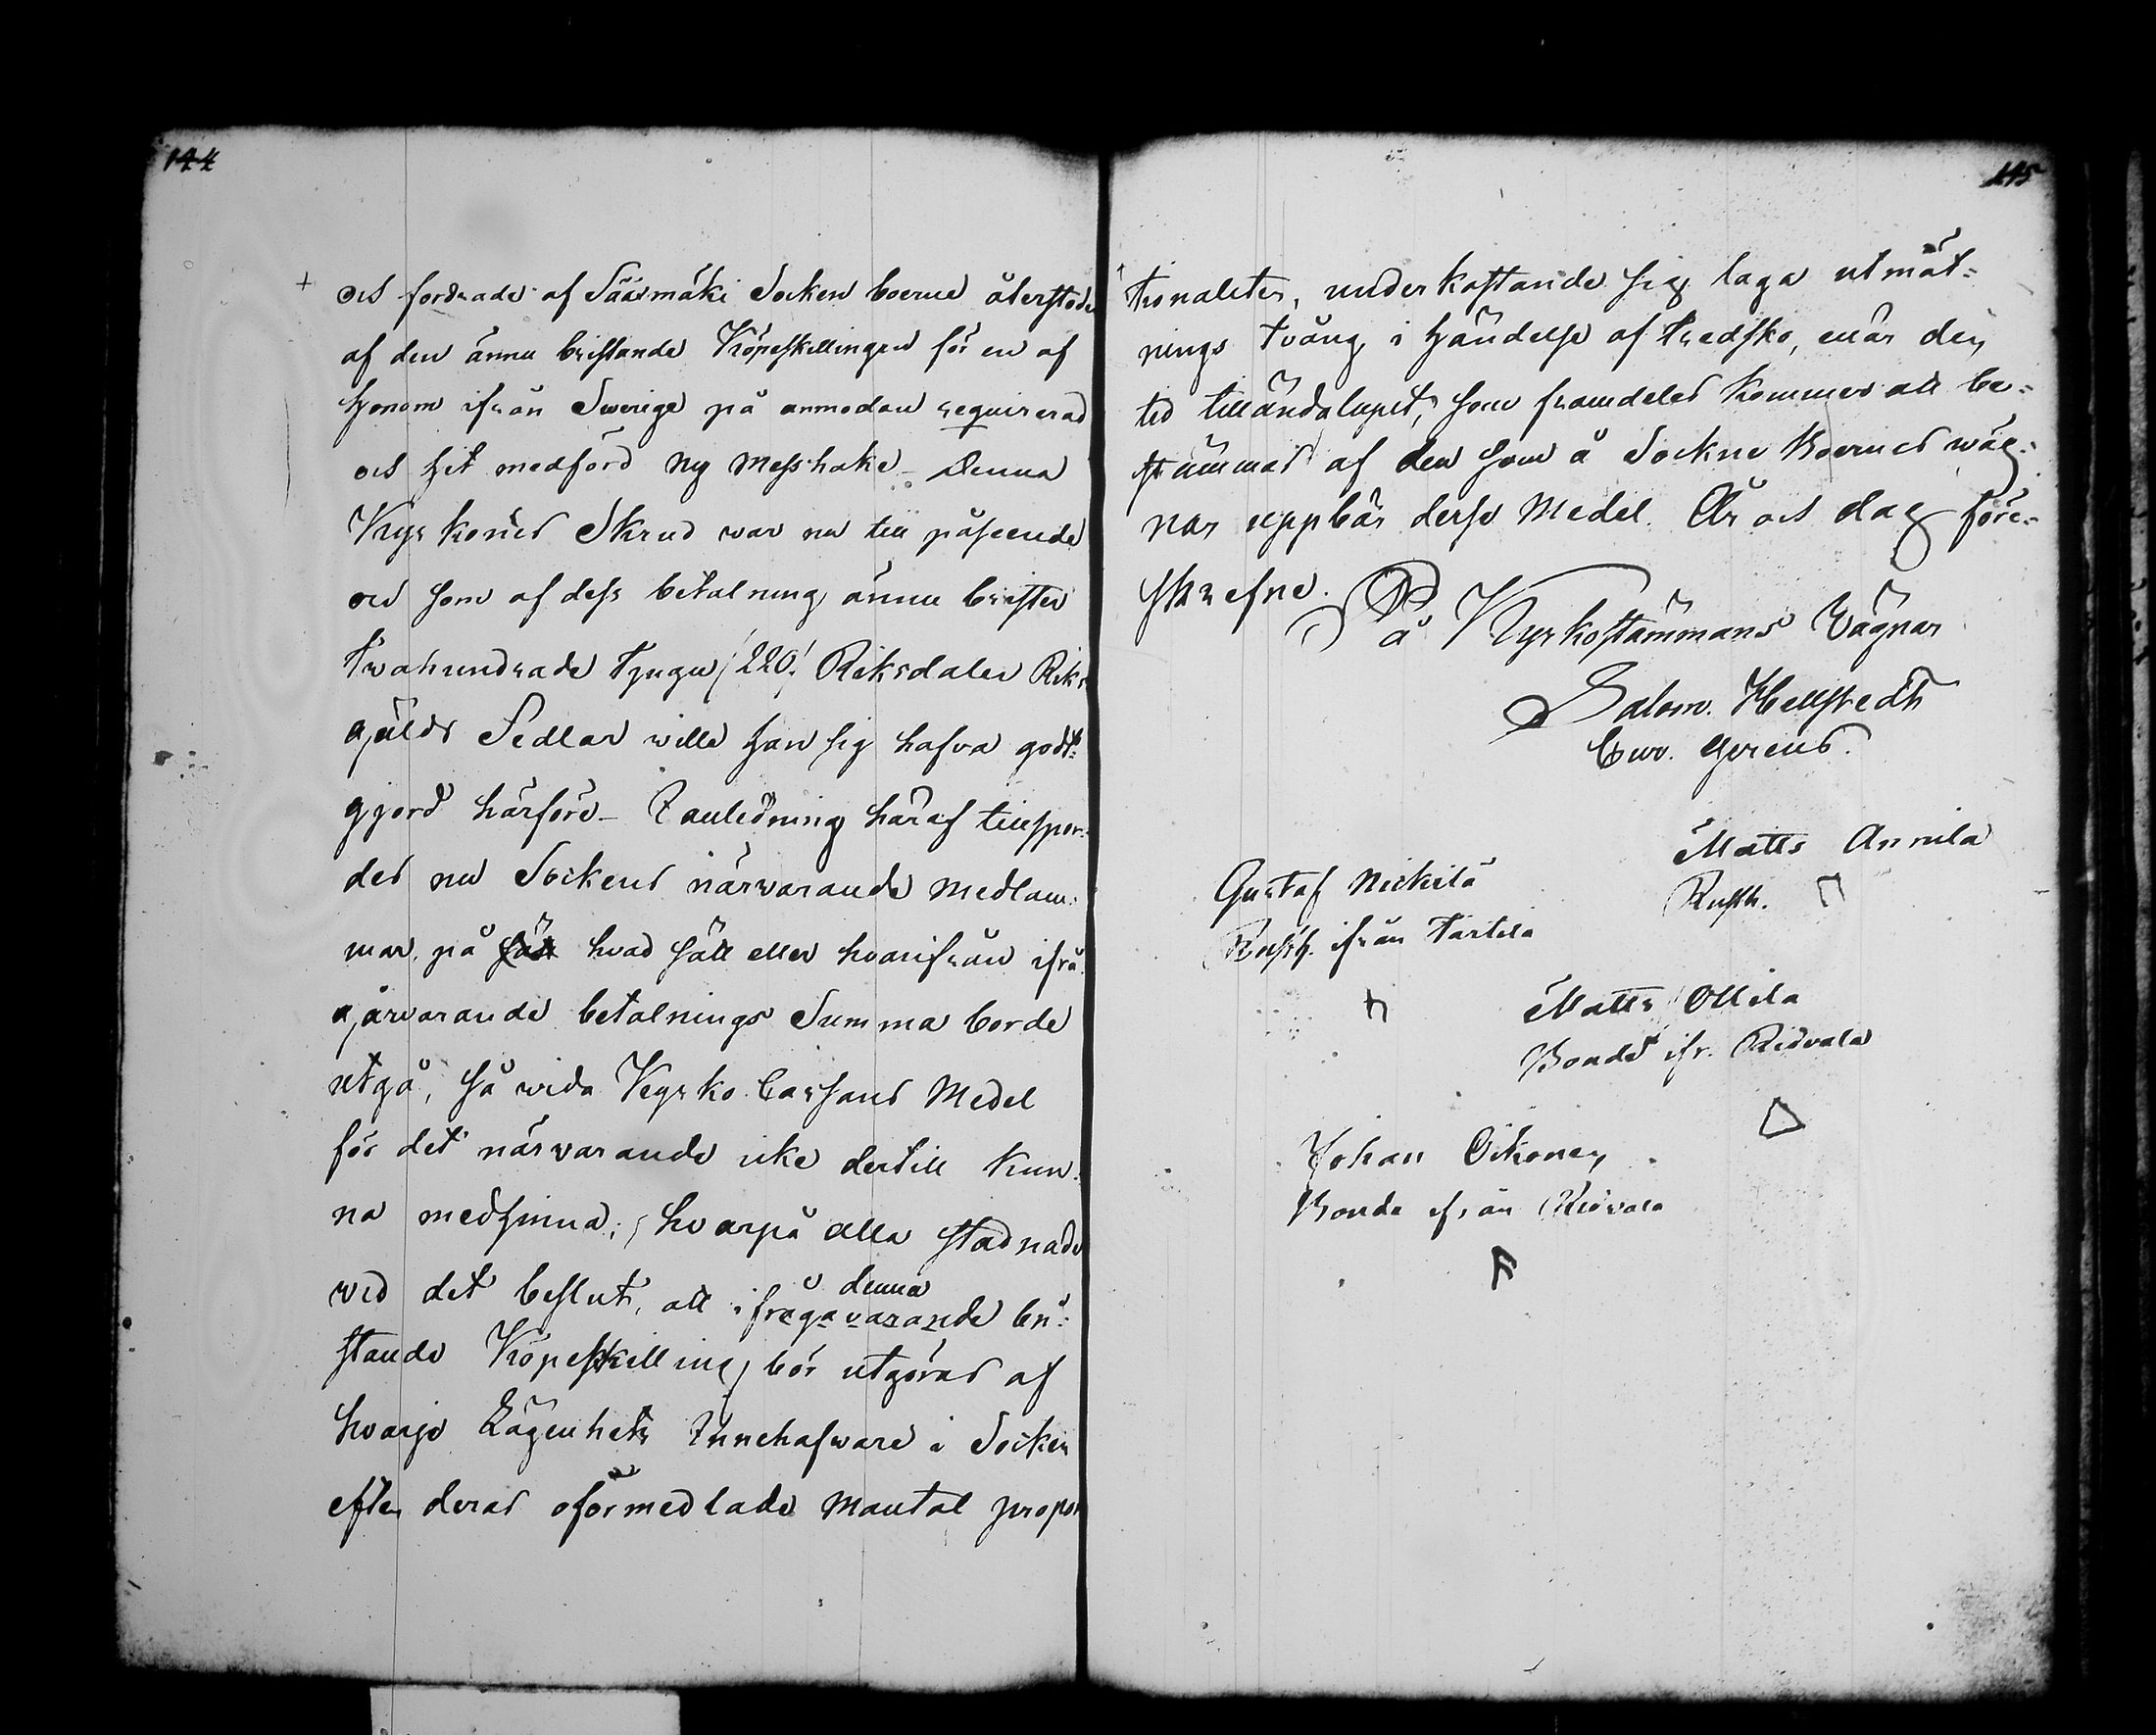 144
+ och fordrade af Sääxmäki Socken boerne återstoden
af den ännu bristande Köpeskillingen för en af
honom ifrån Swerige på anmodan requirerad
och hit medförd ny Messhake – Denna
Kyrkones Skrud war nu till påseende
och som af dess betalning ännu brister
Twåhundrade Tjugu /220/ Riksdaler Riks
gälds Sedlar wille han sig hafva godt=
gjord härföre – I anledning häraf tillspor=
des nu Sockens närwarande Medlem=
mar, på sätt hvad sätt eller hvarifrån ifrå
gavarande betalnings Summa borde
utgå, så wida Kyrko Cassans Medel
för det närvarande icke dertill kun=
na medhinna; hvarpå alla stadnade
wid det beslut, att denna
ifrågavarande bri=
stande Köpeskilling bör utgöras af
hvarje Lägenhets Innehafware i Socken
efter deras oförmedlade Mantal propor
145
tionaliter, underkastande sig laga utmät=
nings tvång i händelse af tredsko, enär den
tid tilländalupit, som framdeles kommer att be=
stämmas af den som å Sockne Boernes wäg=
nar uppbär desse Medel. År och dag före=
skrefne.
På Kyrkostämmans Vägnar
Salom. Hellstedt
Cur. Gerens.
Matts Annila
Rusth.
Gustaf Nickilä
Rusth. ifrån Tarttila
Matts Ollila
Bonde ifr. Ridvala
Johan Oikonen
Bonde ifrån Ridvala